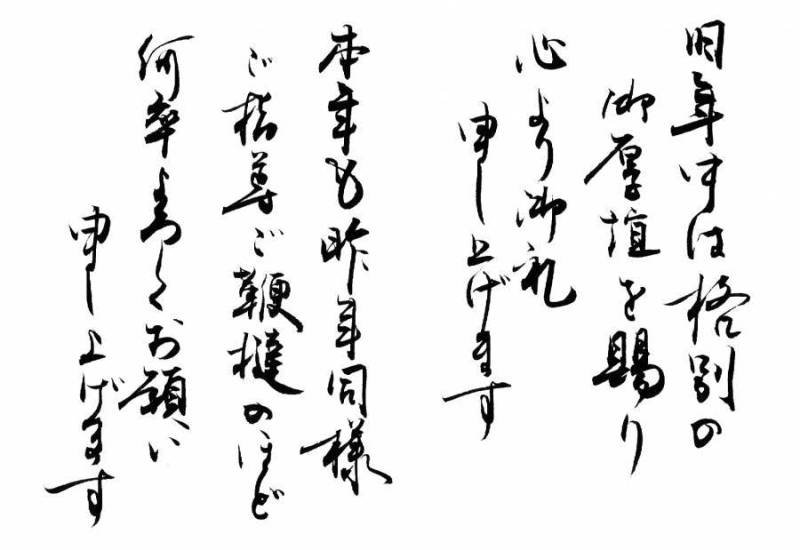 旧年中は格別の
御厚誼を賜り
心より御礼
申し上げます
本年も昨年同様
ご指導ご鞭撻のほど
何卒よろしくお願い
申し上げます